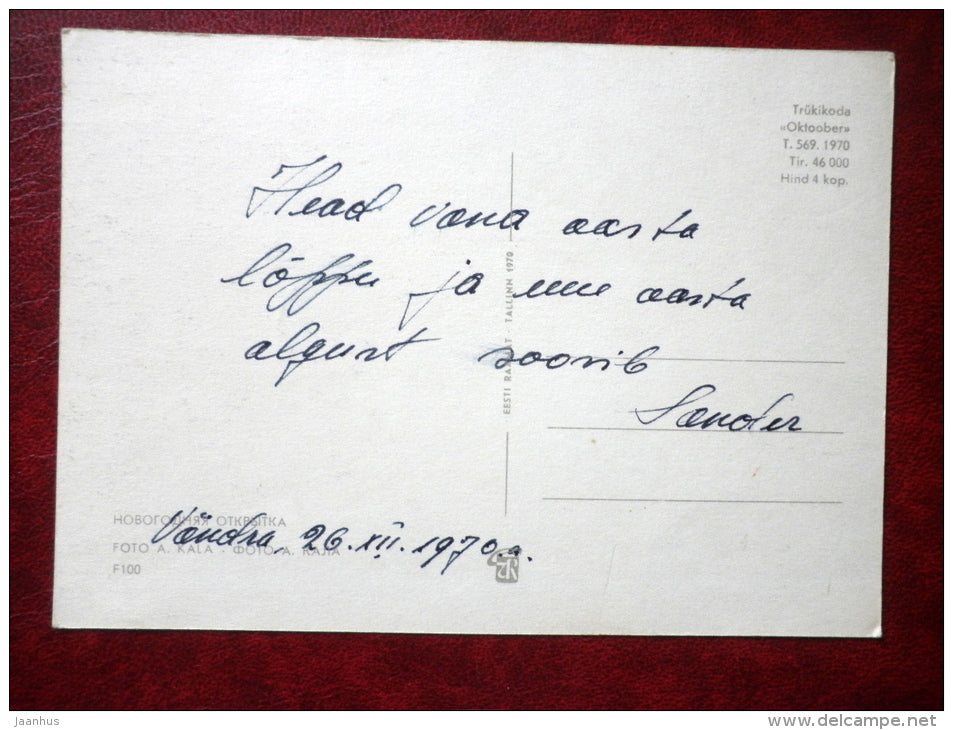 Trükikoda
«Oktoober»
T. 569. 1970
Tir. 46 000
Hind 4 kop.
Head vana aasta
lõppu ja uue aasta
algust soovib
Sander
EESTI RAAMAT TALLINN 1970
Vändra, 26.XII.1970.a.
НОВОГОДНЯЯ ОТКРЫТКА
FOTO A. KALA · ФОТО А. КАЛА
F100
Jaanhus
www.delcampe.net